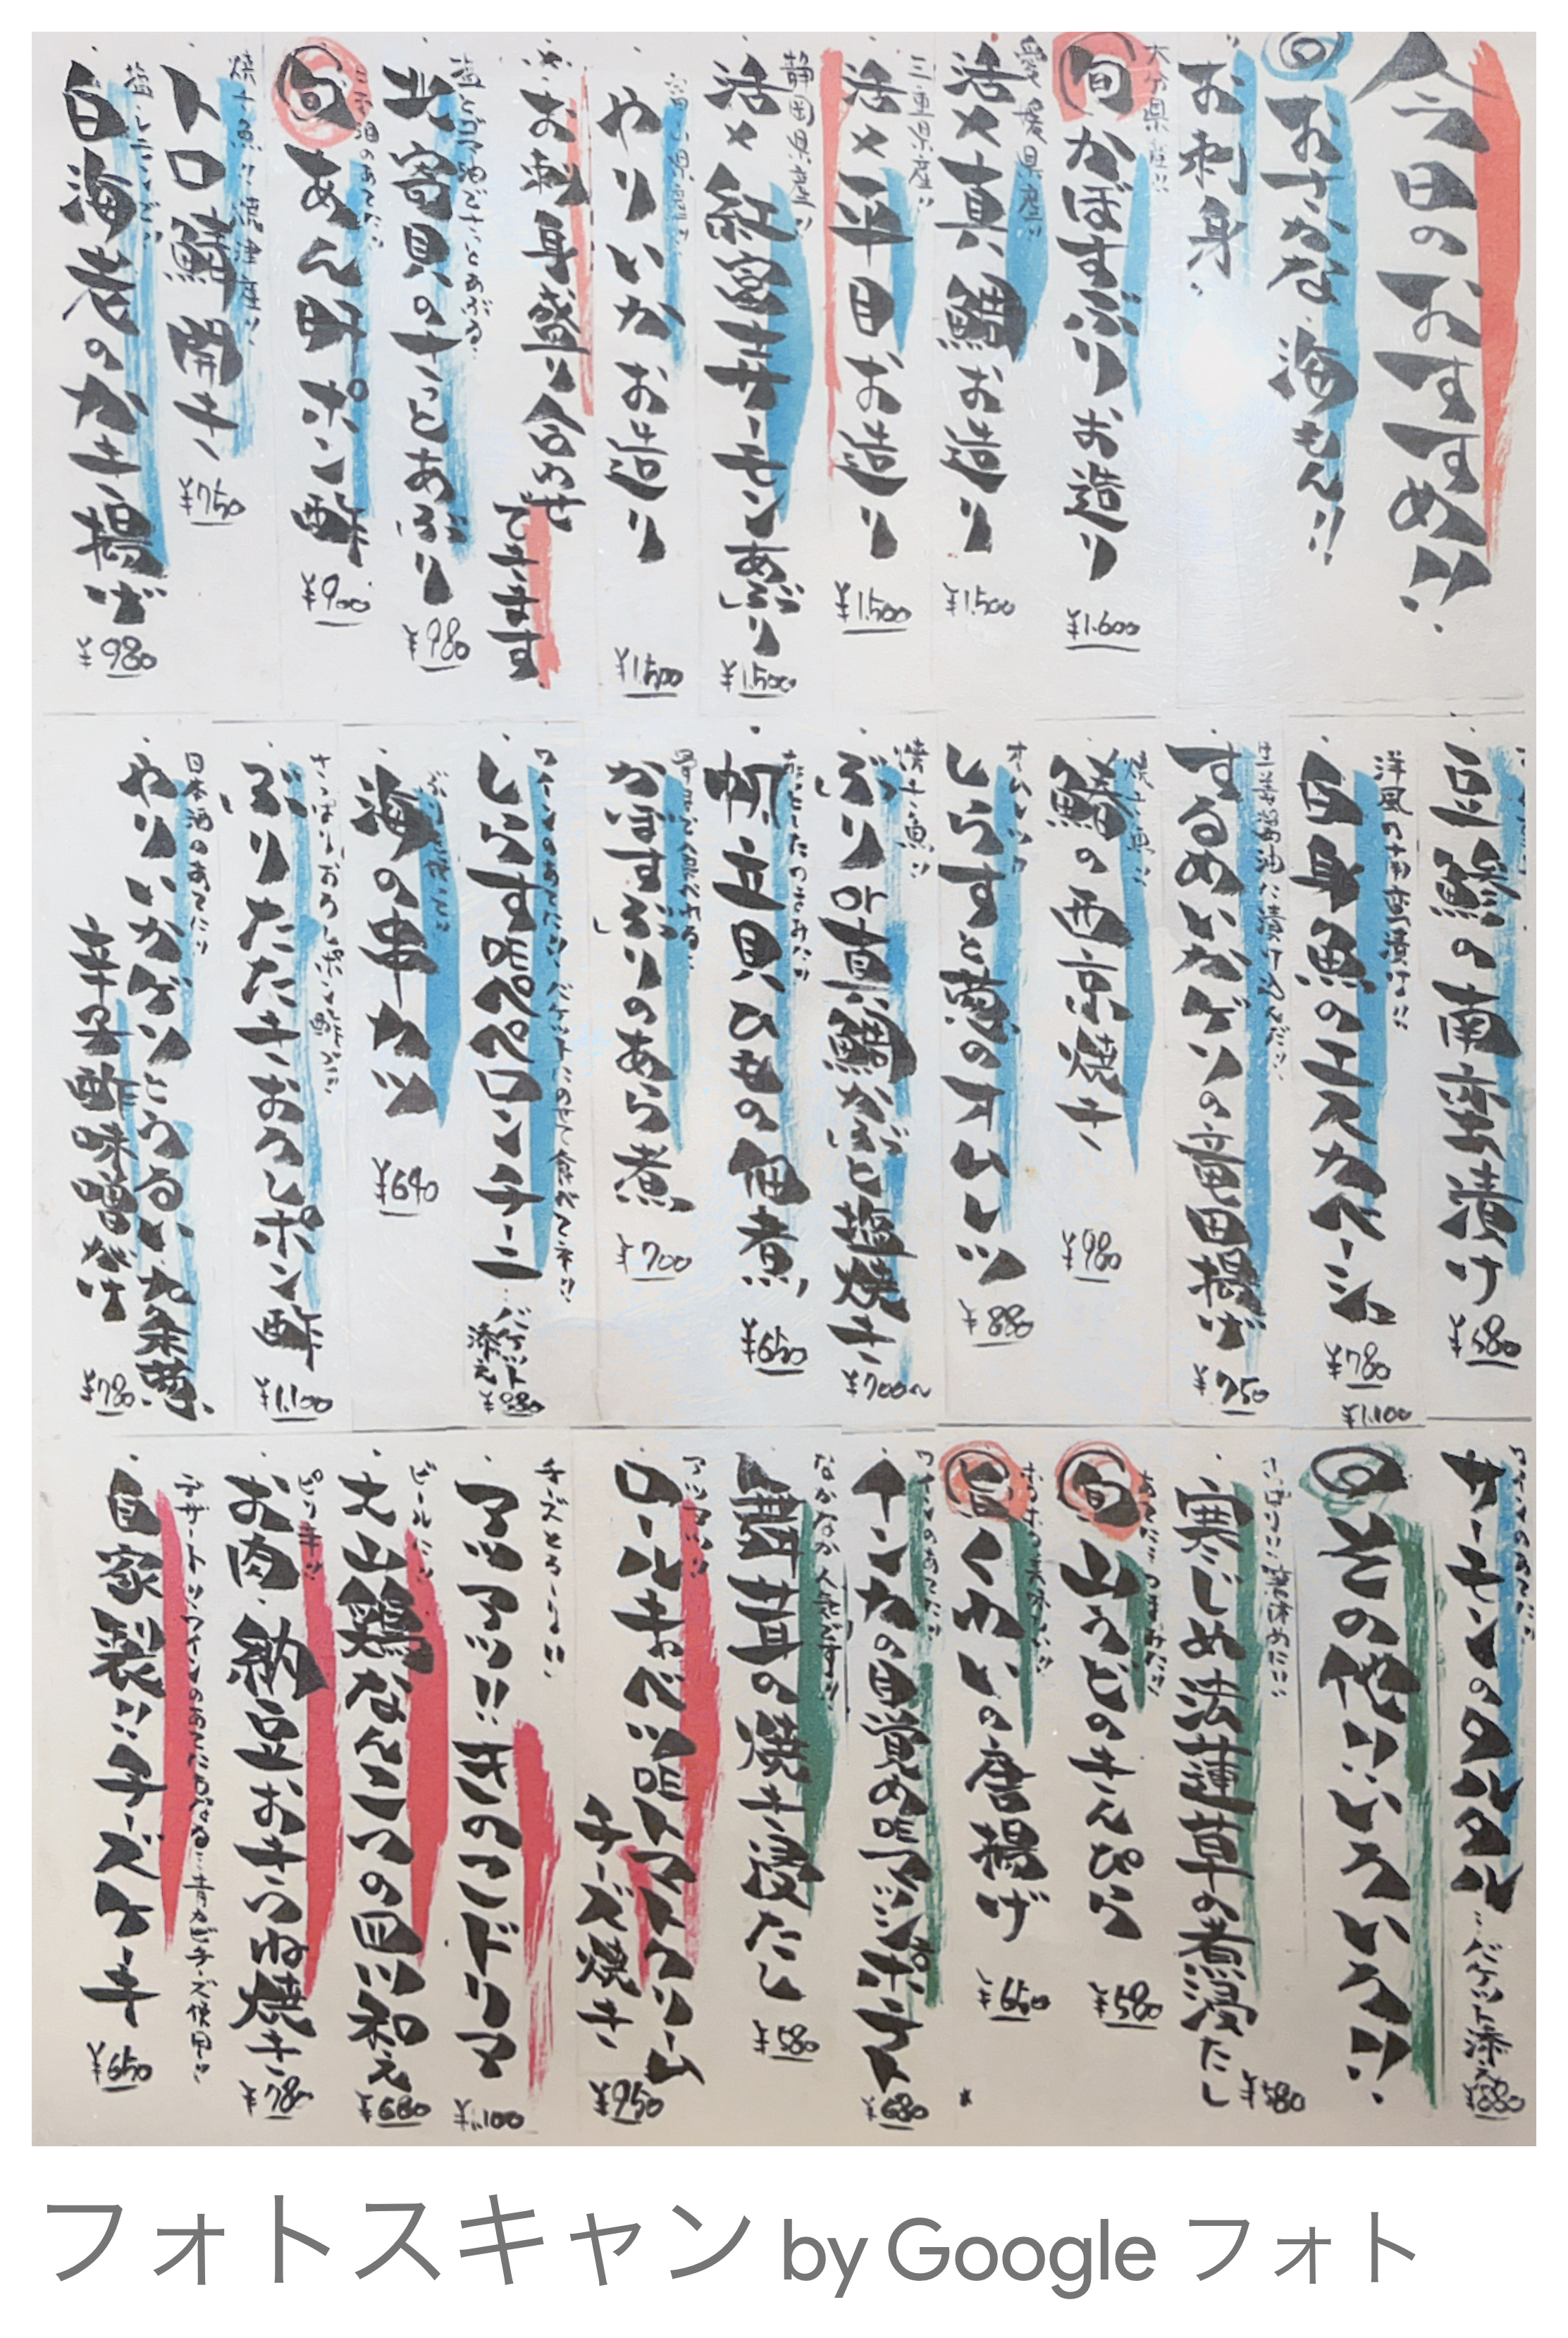 今日のおすすめ!!
おさかな・海もん!!
お刺身
大分県産!!
旬 かぼすぶりお造り
¥1.600
愛媛県産!!
活〆真鯛お造り
¥1.500
三重県産!!
活〆平目お造り
¥1.500
静岡県産!!
活〆紅富士サーモンあぶり
¥1.500
富山県産!!
やりいかお造り
¥1.500
お刺身盛り合わせ
できます
塩とゴマ油でさっとあぶる
北寄貝のさっとあぶり
¥980
旬 あん肝ポン酢
¥900
焼き魚!! 沼津産!!
トロ鯖開き
¥750
白海老のかき揚げ
¥980
豆鯵の南蛮漬け
¥580
洋風の南蛮漬け!!
白身魚のエスカベーシュ
¥780
¥1.100
生姜醤油に漬け込んだ!!
するめいかげその竜田揚げ
¥750
焼き魚!!
鰆の西京焼き
¥980
オムレツ
しらすと葱のオムレツ
¥880
焼き魚!!
ぶりor真鯛かぶと塩焼き
¥700〜
帆立貝ひもの佃煮
¥650
かぼすぶりのあら煮
¥700
ワインのあてに!! バケットにのせて食べてネ!!
しらすのペペロンチーニ
バケット
添え
¥880
海の串カツ
¥640
さっぱりおろしポン酢で
ぶりたたきおろしポン酢
¥1.100
日本酒のあてに!!
やりいかげそとうるい・九条葱
辛子酢味噌がけ
¥780
サーモンのタルタル
…バケット添え
¥880
その他いろいろ!!
寒じめ法蓮草の煮浸だし
¥580
旬 山うどのきんぴら
¥580
旬 くわいの唐揚げ
¥650
¥680
舞茸の焼き浸だし
¥580
アツアツ!!
ロールキャベツ
トマトクリーム
チーズ焼き
¥950
チーズとろ〜り!!
アツアツ!! 牡のマカドリア
¥1.100
ビールに!!
大山鶏なんこつの四川和え
¥680
ピリ辛!!
お肉・納豆おきつね焼き
¥780
デザート!! ワインのあてにもなる… 青カビチーズ使用!!
自家製!! チーズケーキ
¥650
フォトスキャン by Google フォト